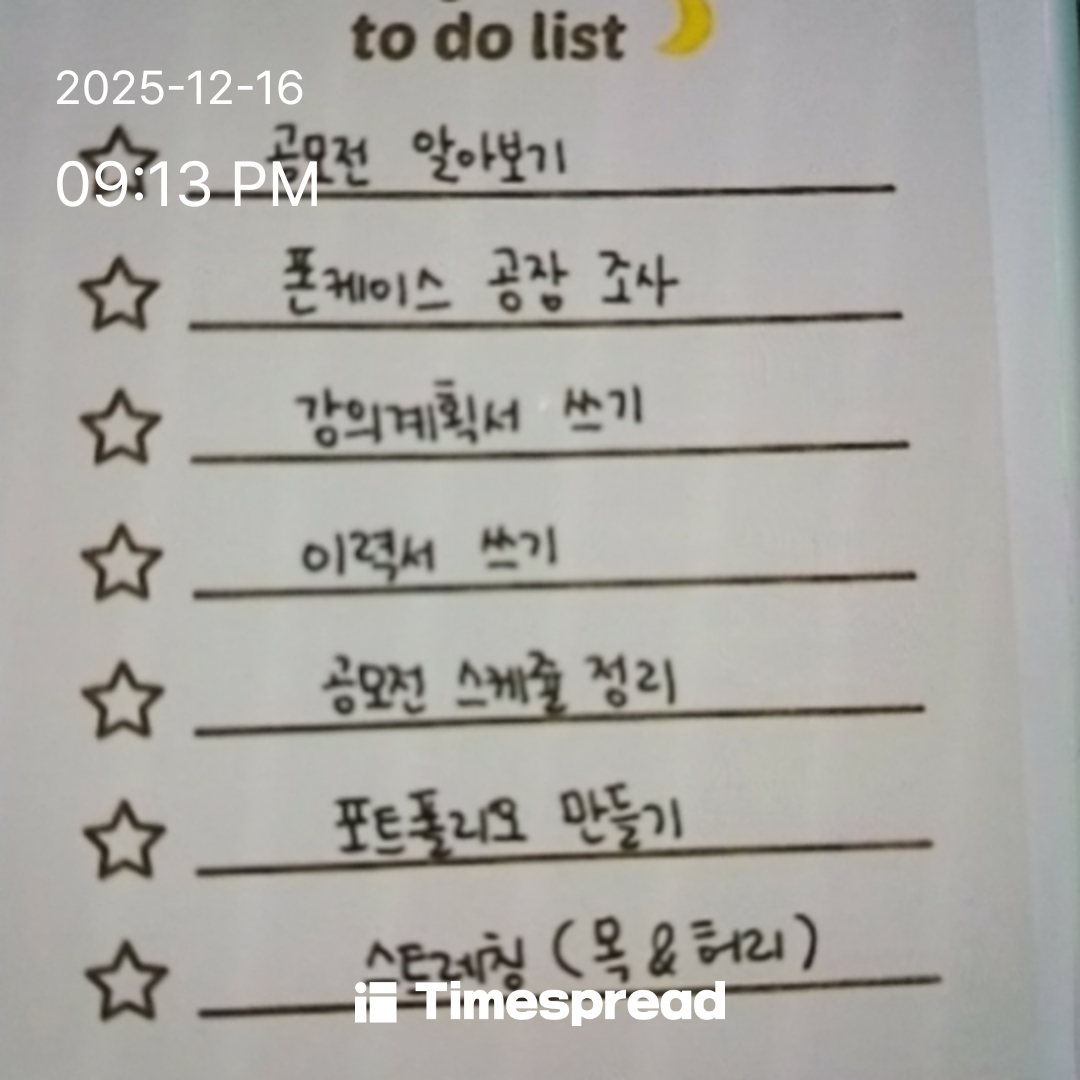 to do list
2025-12-16
공모전 알아보기
09:13 PM
폰케이스 공장 조사
강의계획서 쓰기
이력서 쓰기
공모전 스케쥴 정리
포트폴리오 만들기
스트레칭 (목 & 허리)
Timespread